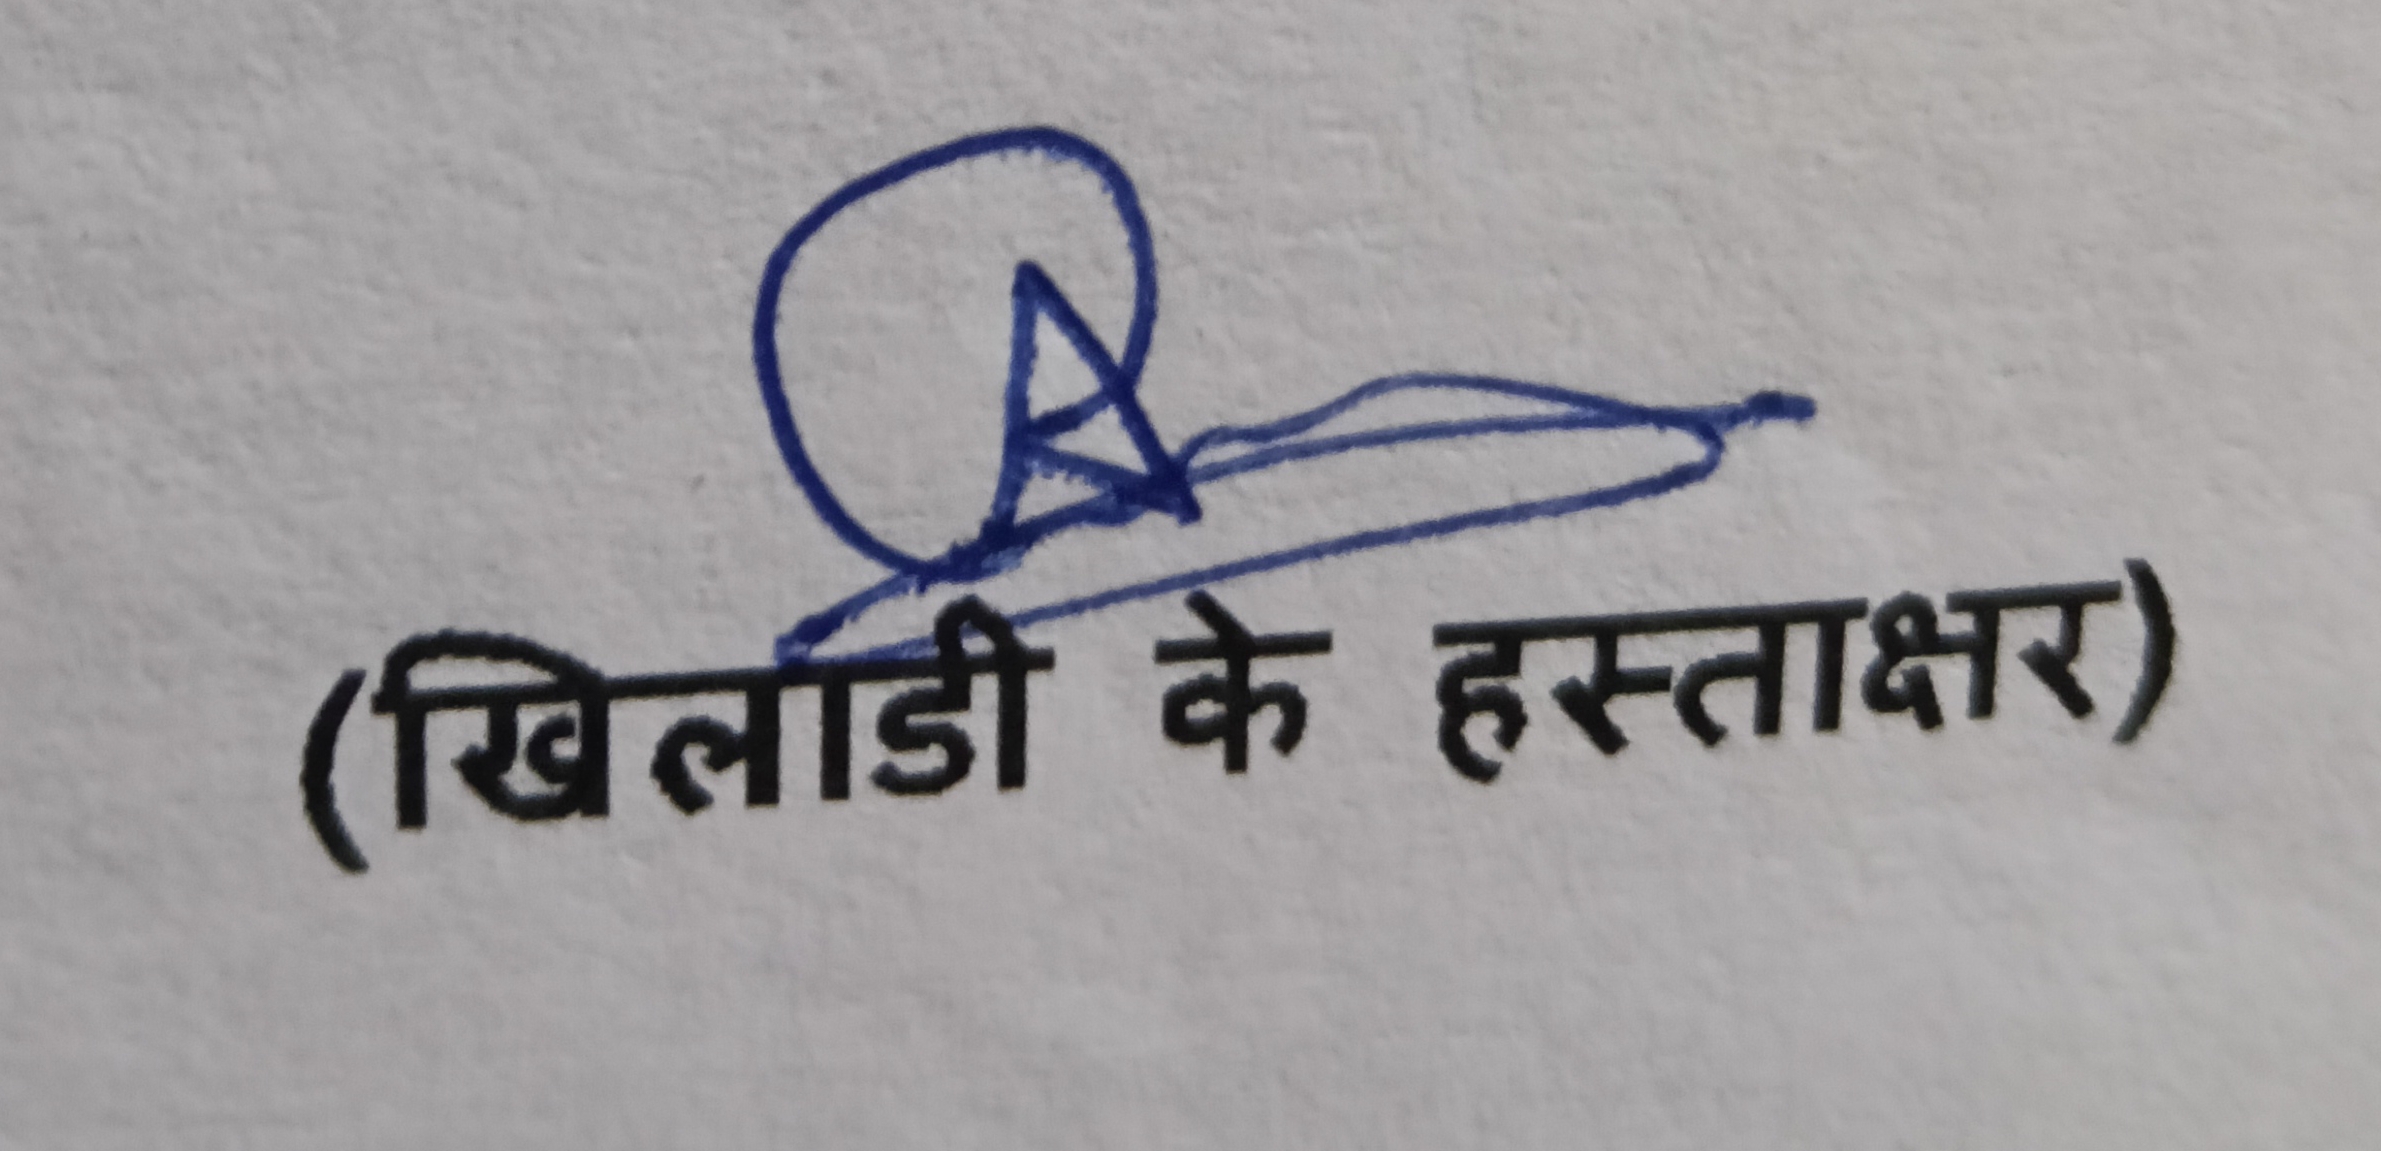 (खिलाडी के हस्ताक्षर)